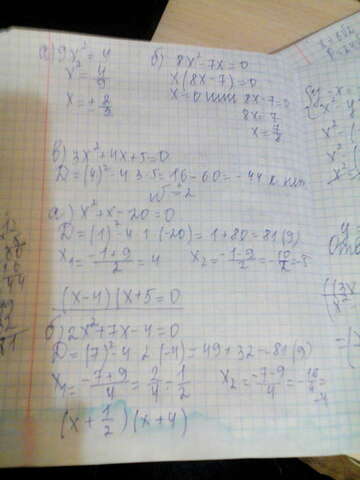 а) 9x² = 4
x² = 4/9
x = ± 2/3
б) 8x² - 7x = 0
x(8x - 7) = 0
x = 0 или 8x - 7 = 0
8x = 7
x = 7/8
в) 3x² + 4x + 5 = 0
D = (4)² - 4 · 3 · 5 = 16 - 60 = -44 к. нет
№ 2
а) x² + x - 20 = 0
D = (1)² - 4 · 1 · (-20) = 1 + 80 = 81 (9)
x₁ = (-1 + 9)/2 = 4 x₂ = (-1 - 9)/2 = -10/2 = -5
(x - 4)(x + 5 = 0
б) 2x² + 7x - 4 = 0
D = (7)² - 4 · 2 · (-4) = 49 + 32 = 81 (9)
x₁ = (-7 + 9)/4 = 2/4 = 1/2 x₂ = (-7 - 9)/4 = -16/4 = -4
(x + 1/2)(x + 4)